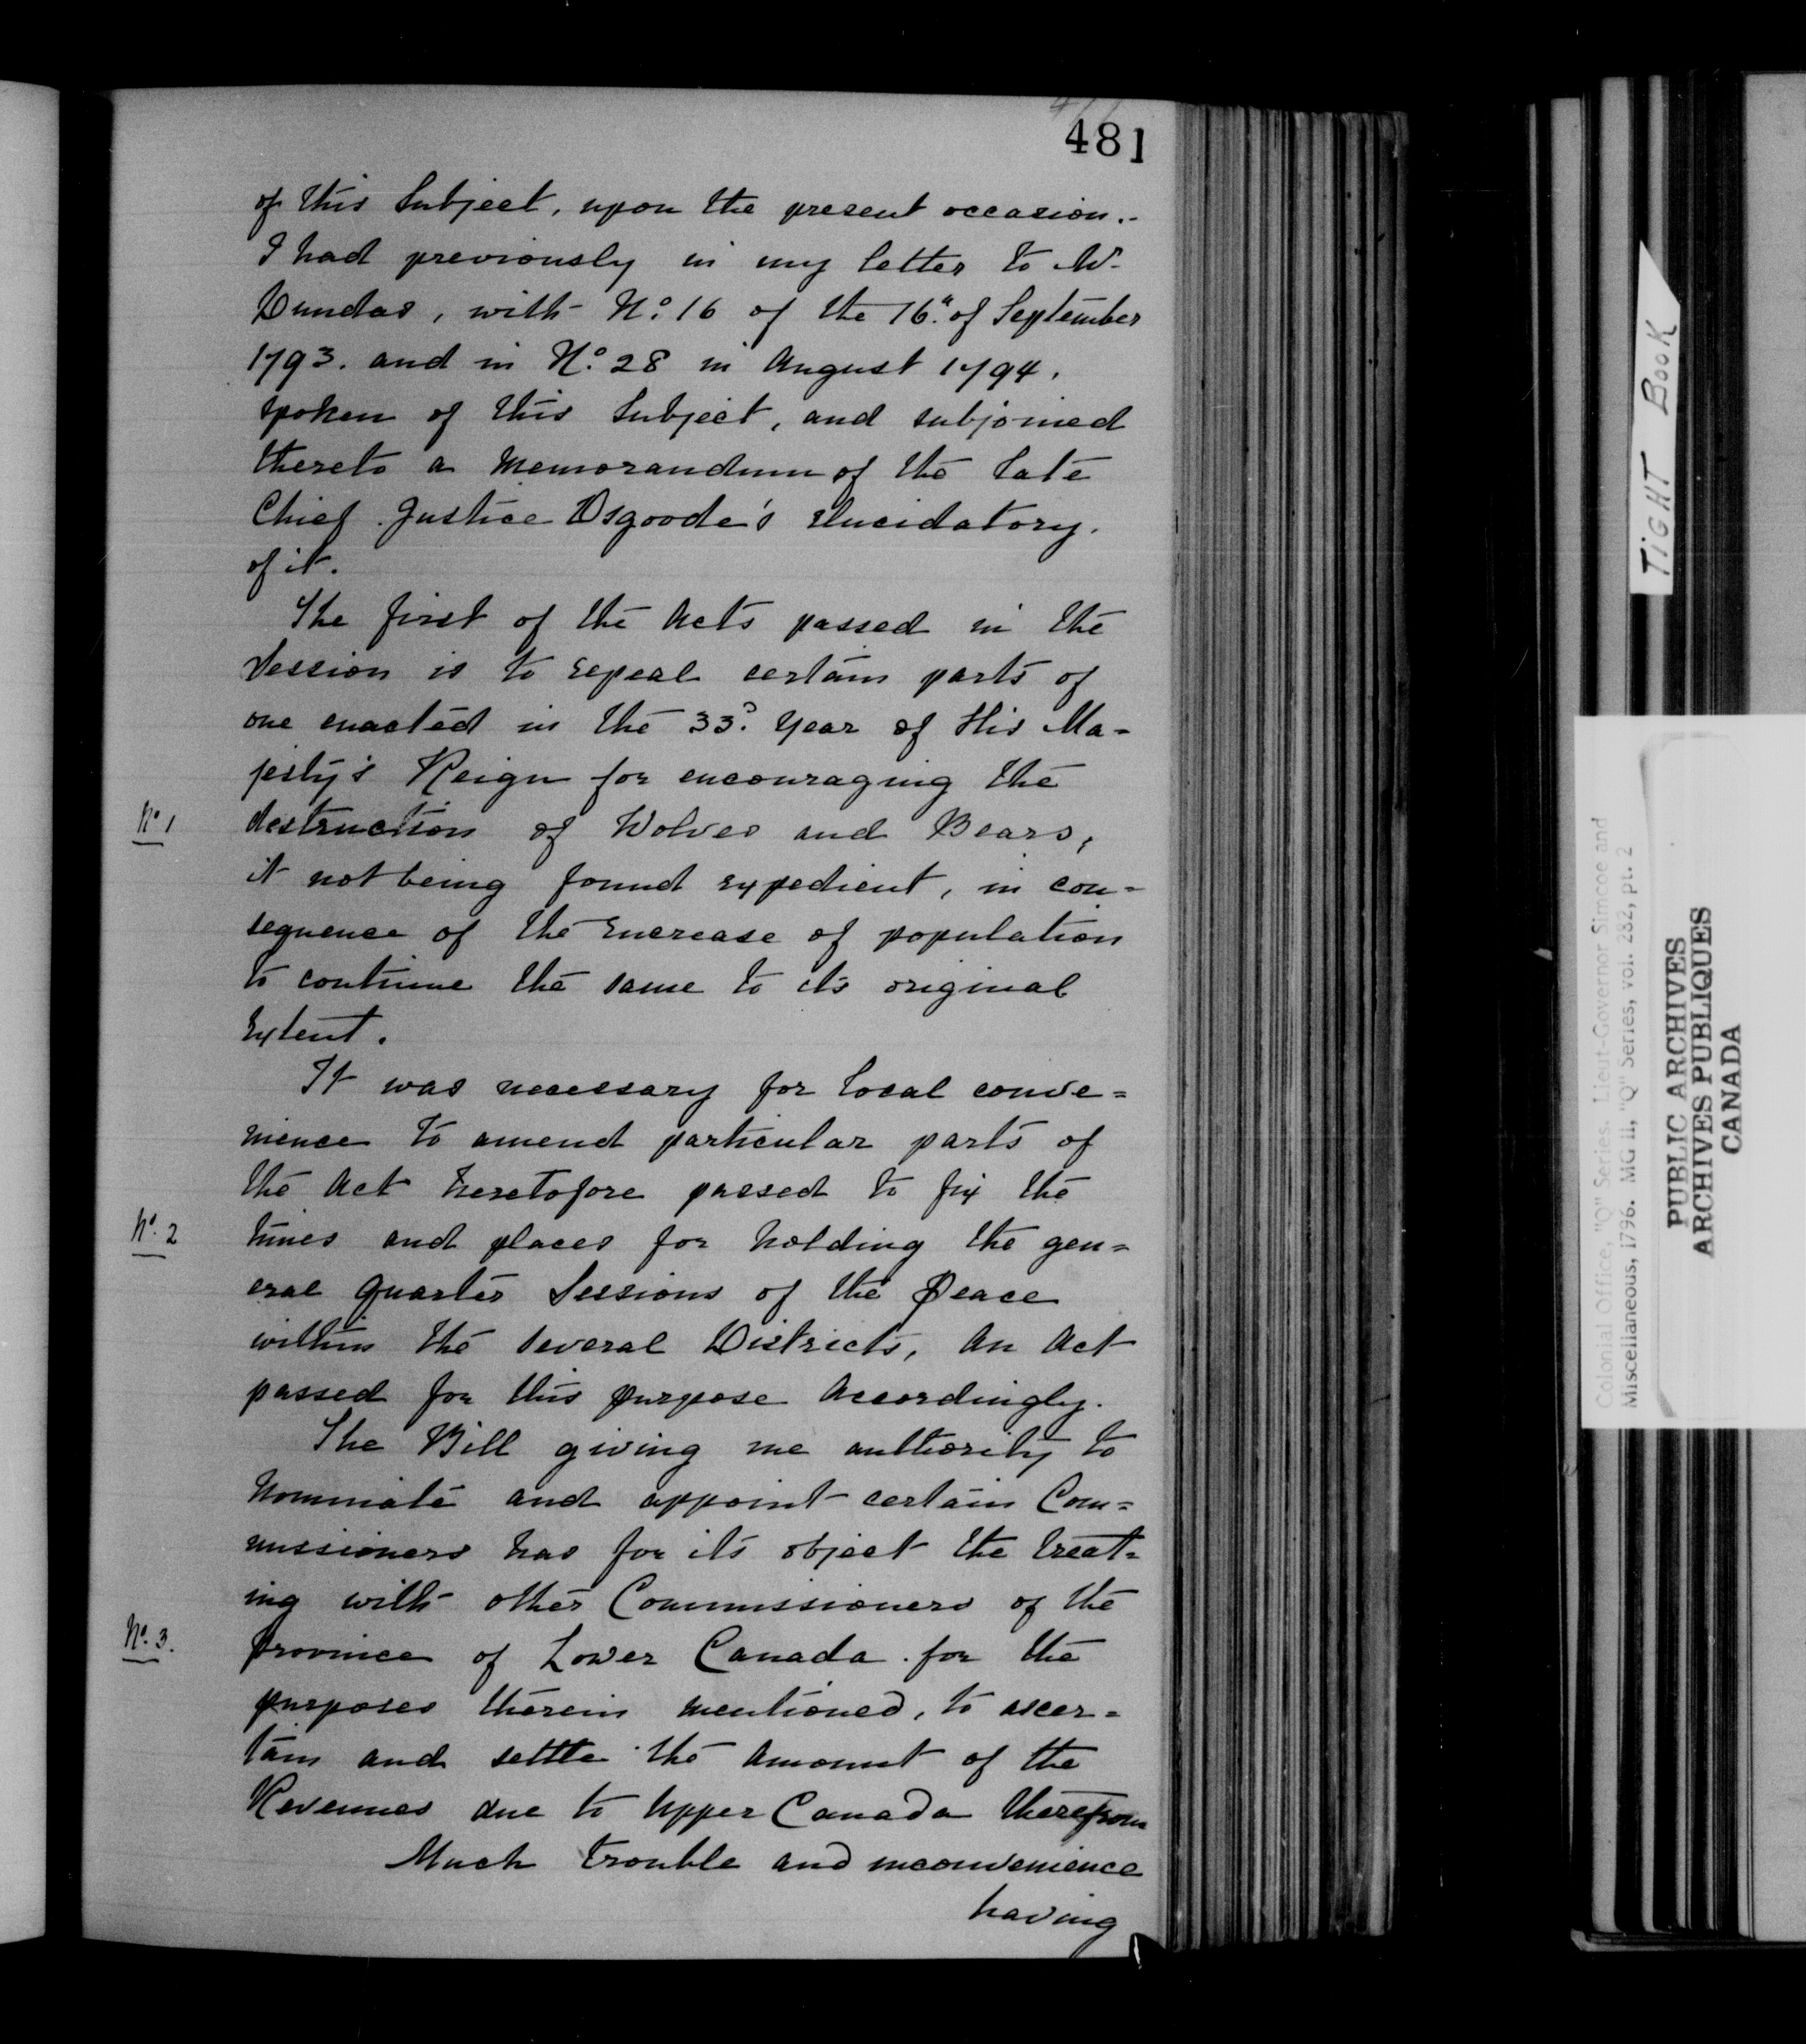 481
of this Subject, upon the present occasion.-
I had previously in my letter to Mr.
Dundas, with No. 16 of the 16th. of September
1793. and in No. 28 in August 1794.
spoken of this Subject, and subjoined
thereto a Memorandum of the late
Chief Justice Osgoode's elucidatory.
of it.
The first of the Acts passed in the
Session is to repeal certain parts of
one enacted in the 33d. Year of His Ma-
jesty's Reign for encouraging the
No. 1
destruction of Wolves and Bears,
it not being found expedient, in con=
sequence of the Encrease of population
to continue the same to its original
Extent.
It was necessary for local conve=
nience to amend particular parts of
the Act heretofore passed to fix the
No. 2
times and places for holding the gen=
eral Quarter Sessions of the Peace
within the several Districts, An Act
passed for this purpose Accordingly.
The Bill giving me authority to
Nominate and appoint certain Com=
missioners has for its object the treat=
ing with other Commissioners of the
No. 3.
Province of Lower Canada for the
purposes therein mentioned, to ascer=
tain and settle the Amount of the
Revenues due to Upper Canada therefrom
Much trouble and inconvenience
having
TIGHT BOOK
Colonial Office, "Q" Series. Lieut-Governor Simcoe and
Miscellaneous, 1796. MG 11, "Q" Series, vol. 282, pt. 2
PUBLIC ARCHIVES
ARCHIVES PUBLIQUES
CANADA